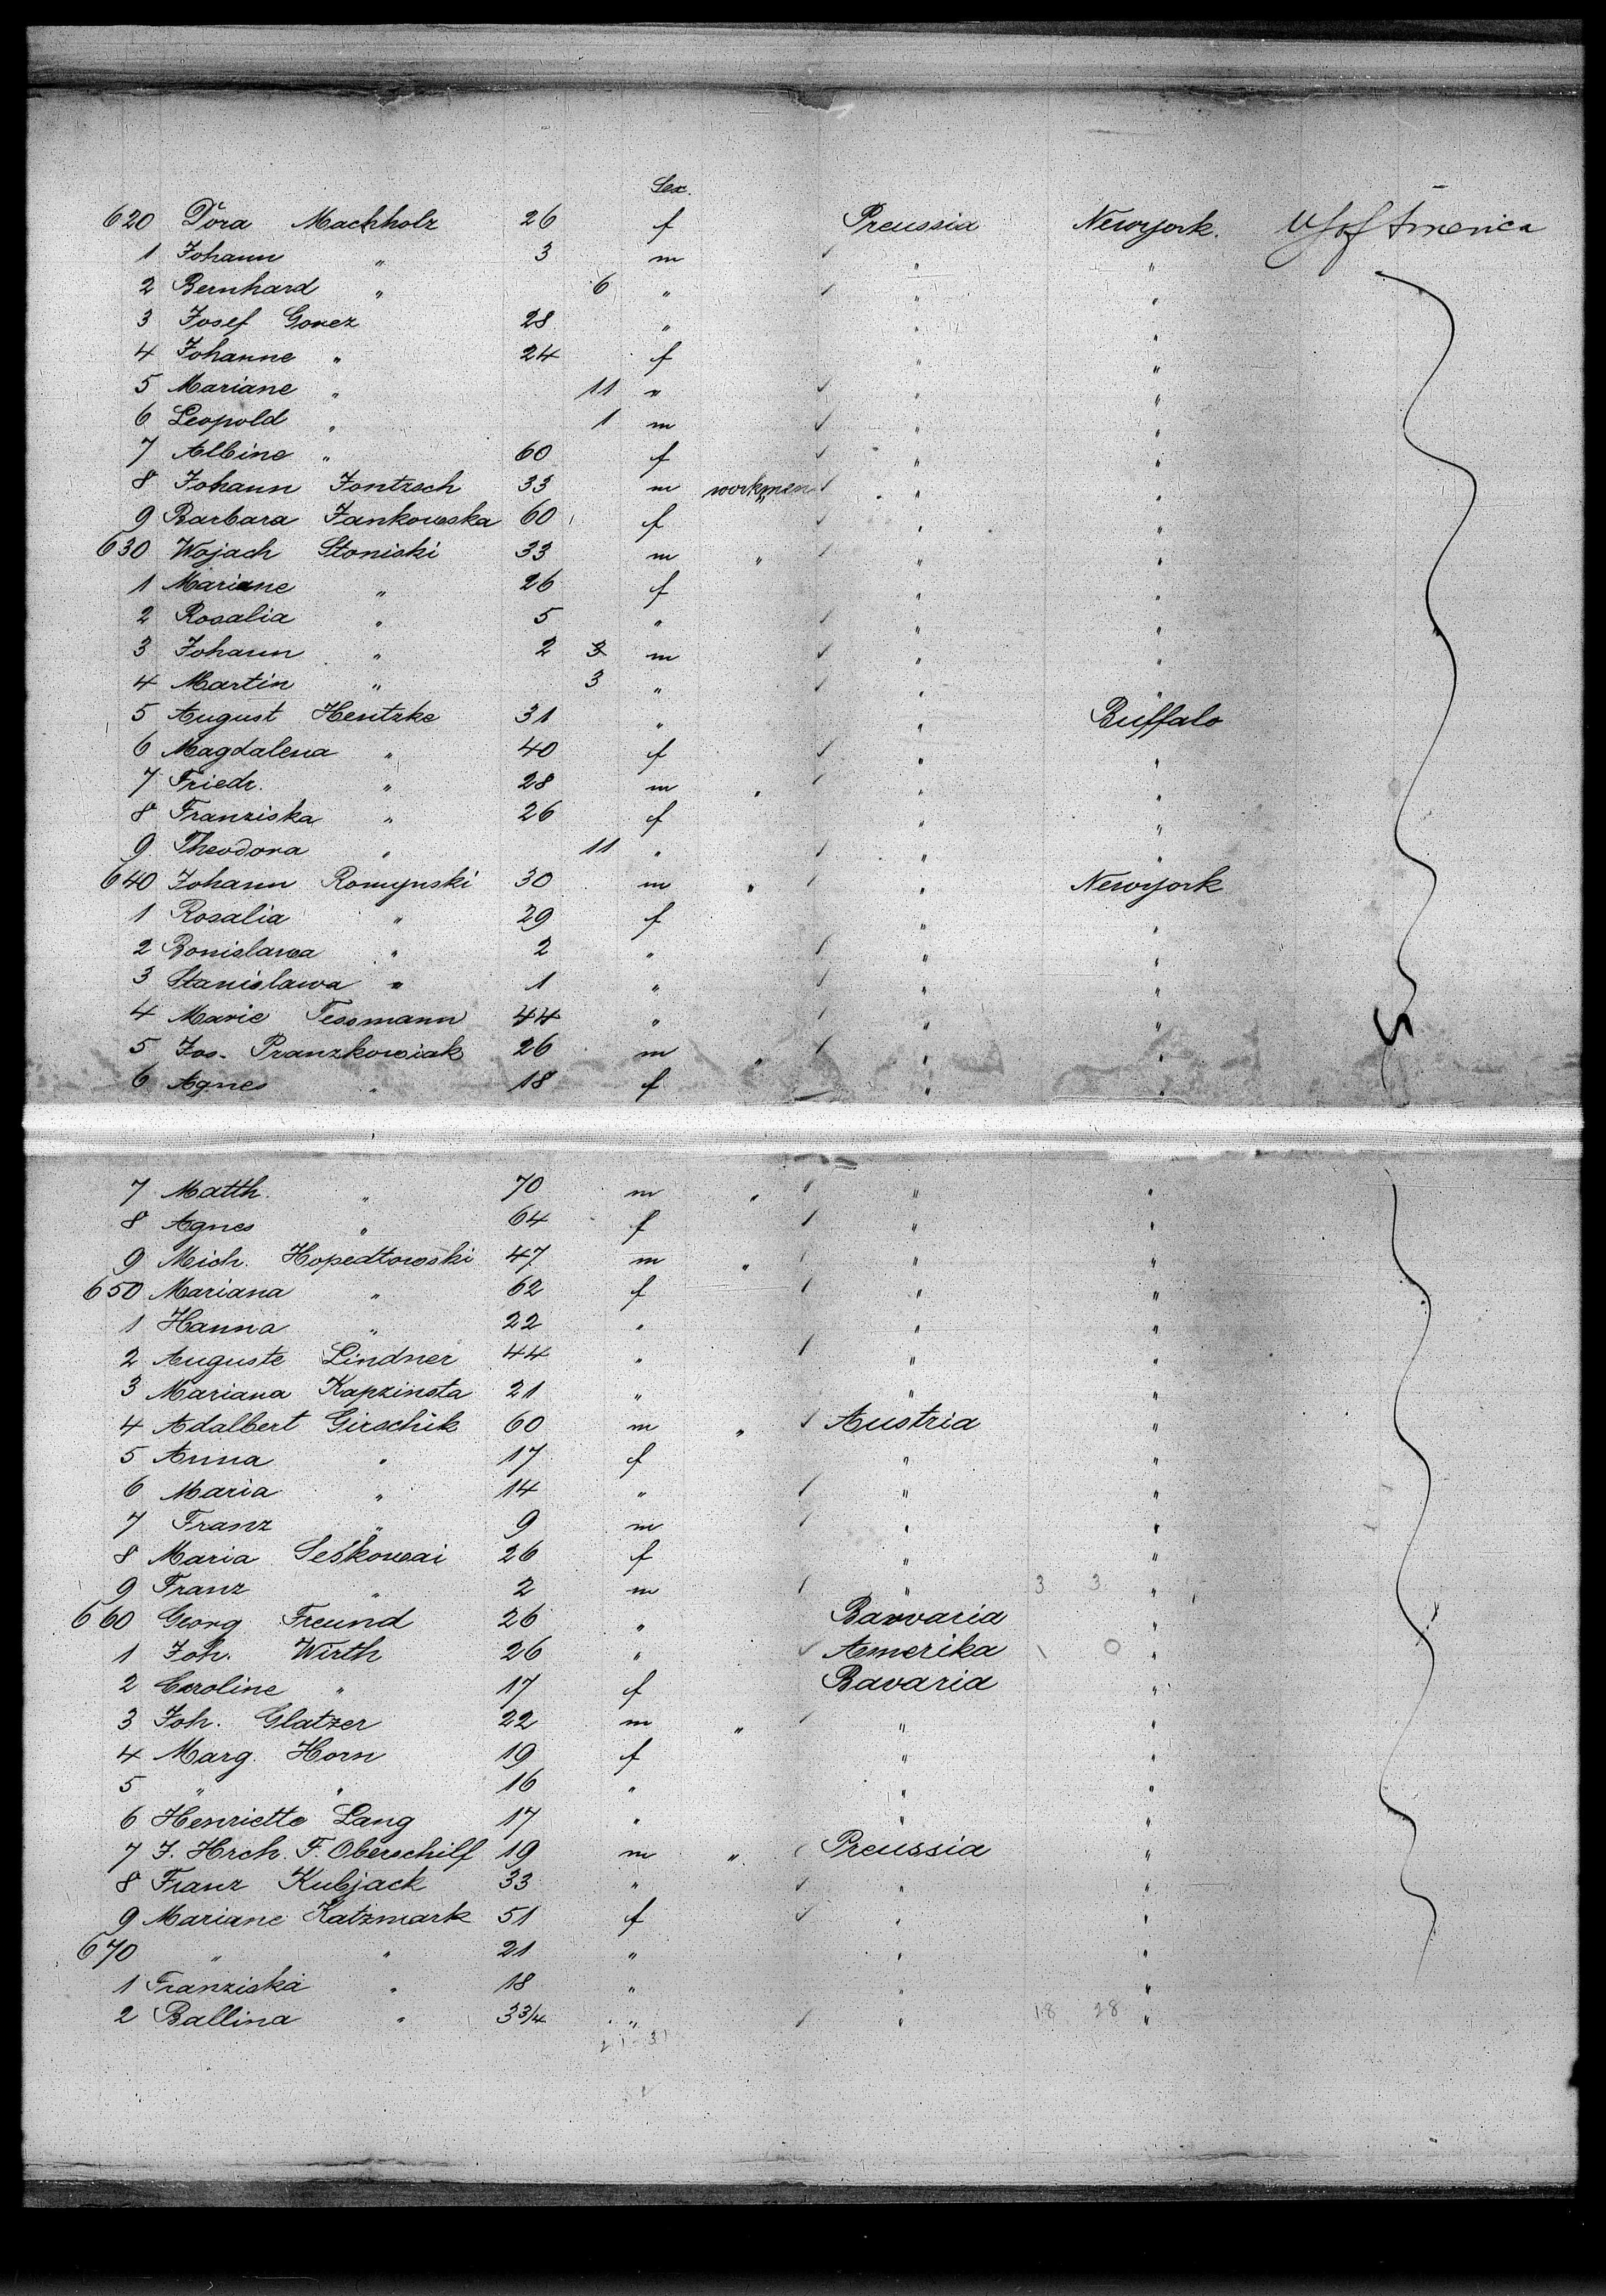 Sex.
620 Dora Machholz 26 f Preussia Newyork. US of America
1 Johann " 3 m " "
2 Bernhard " 6 " " "
3 Josef Gonez 28 " " "
4 Johanne " 24 f " "
5 Mariane " 11 " " "
6 Leopold " 1 m " "
7 Albine " 60 f " "
8 Johann Jontzsch 33 m workmen " "
9 Barbara Jankowska 60 f " "
630 Wojach Stoniski 33 m " " "
1 Mariane " 26 f " "
2 Rosalia " 5 " " "
3 Johann " 2 3 m " "
4 Martin " 3 " " "
5 August Hentzke 31 " " Buffalo
6 Magdalena " 40 f " "
7 Friedr. " 28 m " " "
8 Franziska " 26 f " "
9 Theodora " 11 " " "
640 Johann Romynski 30 m " " Newyork
1 Rosalia " 29 f " "
2 Bonislawa " 2 " " "
3 Stanislawa " 1 " " "
4 Marie Tessmann 44 " " "
5 Jos. Pranzkowiak 26 m " " "
6 Agnes " 18 f " "
7 Matth. " 70 m " " "
8 Agnes " 64 f " "
9 Mich. Hopedtowski 47 m " " "
650 Mariana " 62 f " "
1 Hanna " 22 " " "
2 Auguste Lindner 44 " " "
3 Mariana Kapzinsta 21 " " "
4 Adalbert Girschik 60 m " Austria "
5 Anna " 17 f " "
6 Maria " 14 " " "
7 Franz " 9 m " "
8 Maria Seskowai 26 f " "
9 Franz " 2 m " 3 3 "
660 Georg Freund 26 " Bavvaria "
1 Joh. Wirth 26 " Amerika \ 0 "
2 Caroline " 17 f Bavaria "
3 Joh. Glatzer 22 m " " "
4 Marg. Horn 19 f " "
5 " " 16 " " "
6 Henriette Lang 17 " " "
7 J. Hrch. F. Oberschilf 19 m " Preussia "
8 Franz Kubjack 33 " " "
9 Mariane Katzmark 51 f " "
670 " " 21 " " "
1 Franziska " 18 " " "
2 Ballina " 3 3/4 " " 18 28 "